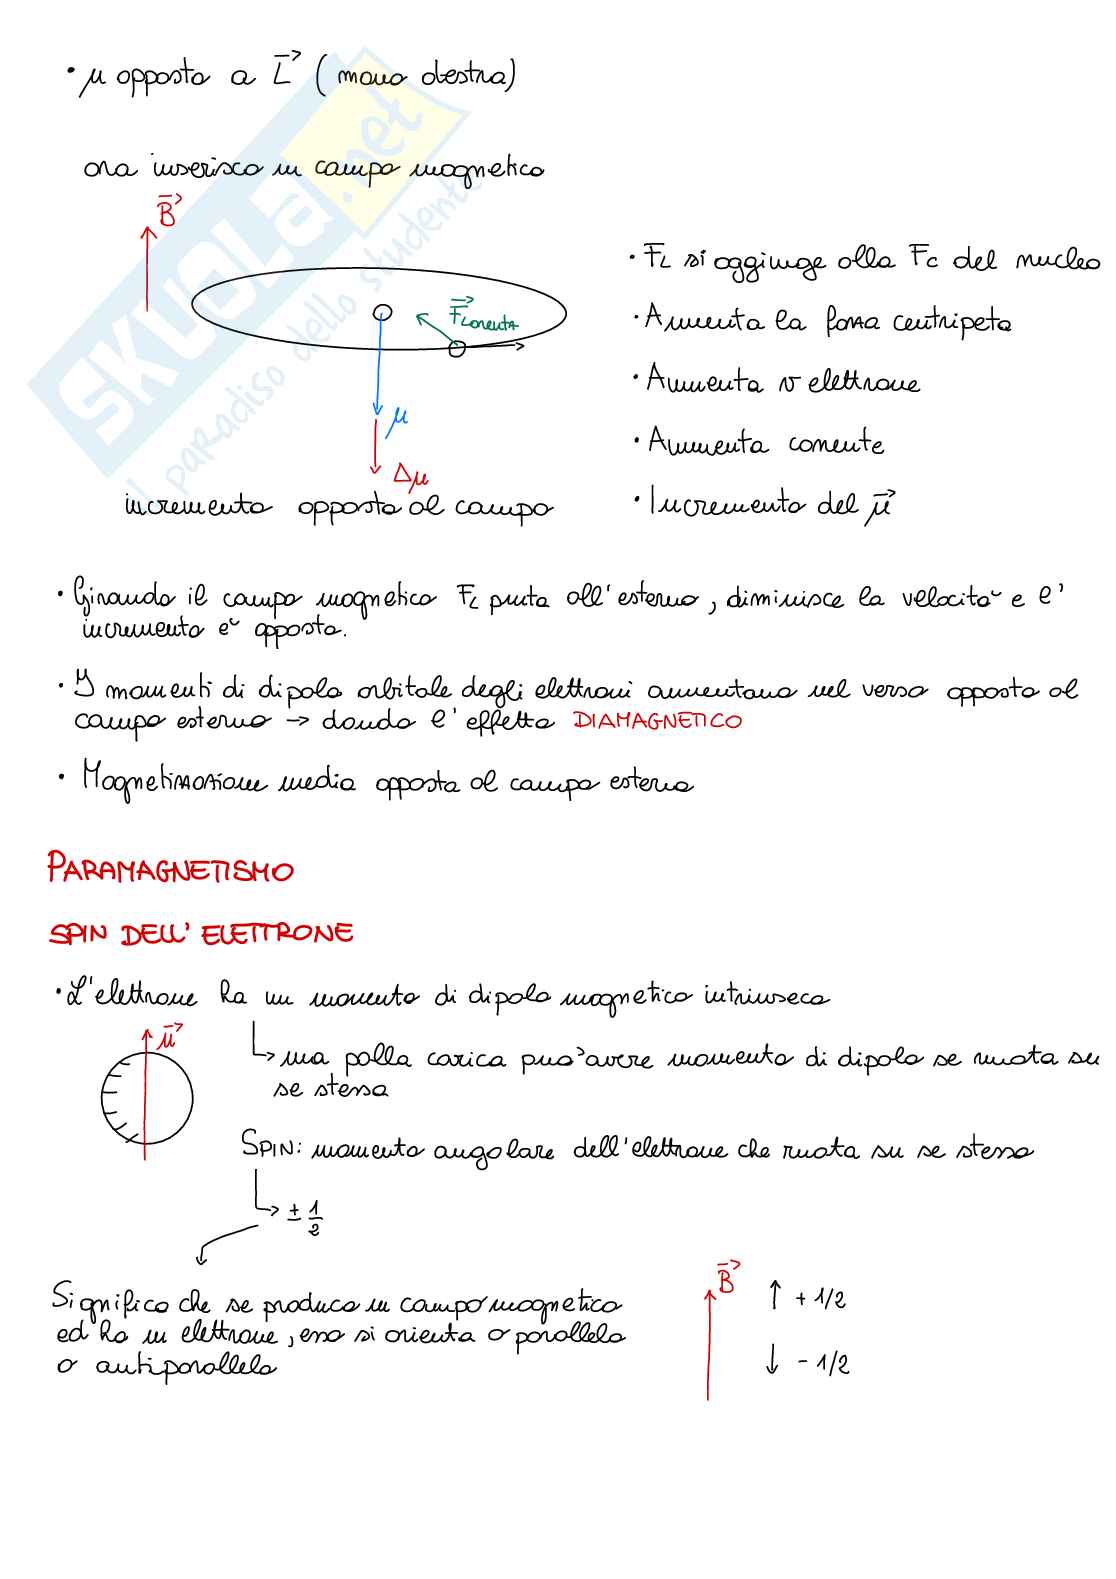 • μ opposto a L⃗ (mano destra)
ora inserisco in campo magnetico
B⃗
F⃗Lorentz
μ
Δμ
incremento opposto al campo
• FL si aggiunge alla FC del nucleo
• Aumenta la forza centripeta
• Aumenta v elettrone
• Aumenta corrente
• Incremento del μ⃗
• Girando il campo magnetico FL punta all'esterno, diminuisce la velocità e l'
incremento è opposto.
• I momenti di dipolo orbitale degli elettroni aumentano nel verso opposto al
campo esterno → dando l'effetto DIAMAGNETICO
• Magnetizzazione media opposta al campo esterno
PARAMAGNETISMO
SPIN DELL'ELETTRONE
• L'elettrone ha un momento di dipolo magnetico intrinseco
μ⃗
↳ una palla carica può avere momento di dipolo se ruota su
se stessa
SPIN: momento angolare dell'elettrone che ruota su se stesso
↳ ± 1/2
Significa che se produco un campo magnetico
ed ho un elettrone, esso si orienta o parallelo
o antiparallelo
B⃗
↑ + 1/2
↓ - 1/2
SKUOLA.net
il paradiso dello studente